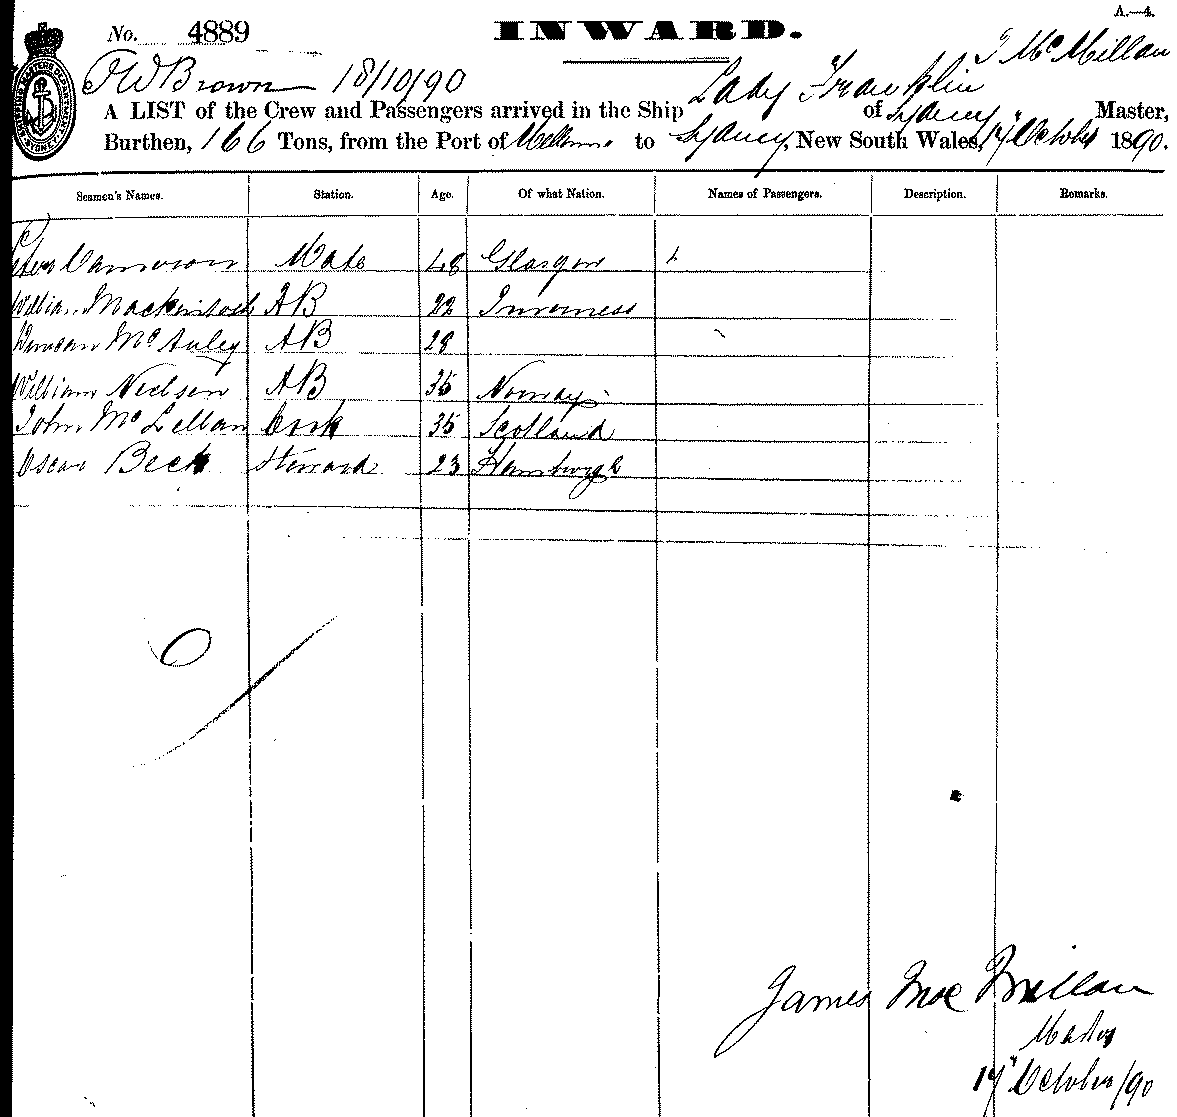 A.—4.
No. 4889 INWARD.
J McMillan
F W Brown 18/10/90 Lady Franklin
A LIST of the Crew and Passengers arrived in the Ship of Sydney Master,
Burthen, 166 Tons, from the Port of to Sydney, New South Wales, 17" October 1890.
Seamen's Names. Station. Age. Of what Nation. Names of Passengers. Description. Remarks.
Cameron Mate 48 Glasgow
William Mackintosh AB 22 Inverness
Duncan McAuley AB 28
William Neilsen AB 35 Norway
John McLellan Cook 35 Scotland
Oscar Beck Steward 23 Hamburgh
James MacMillan
Master
17" October/90